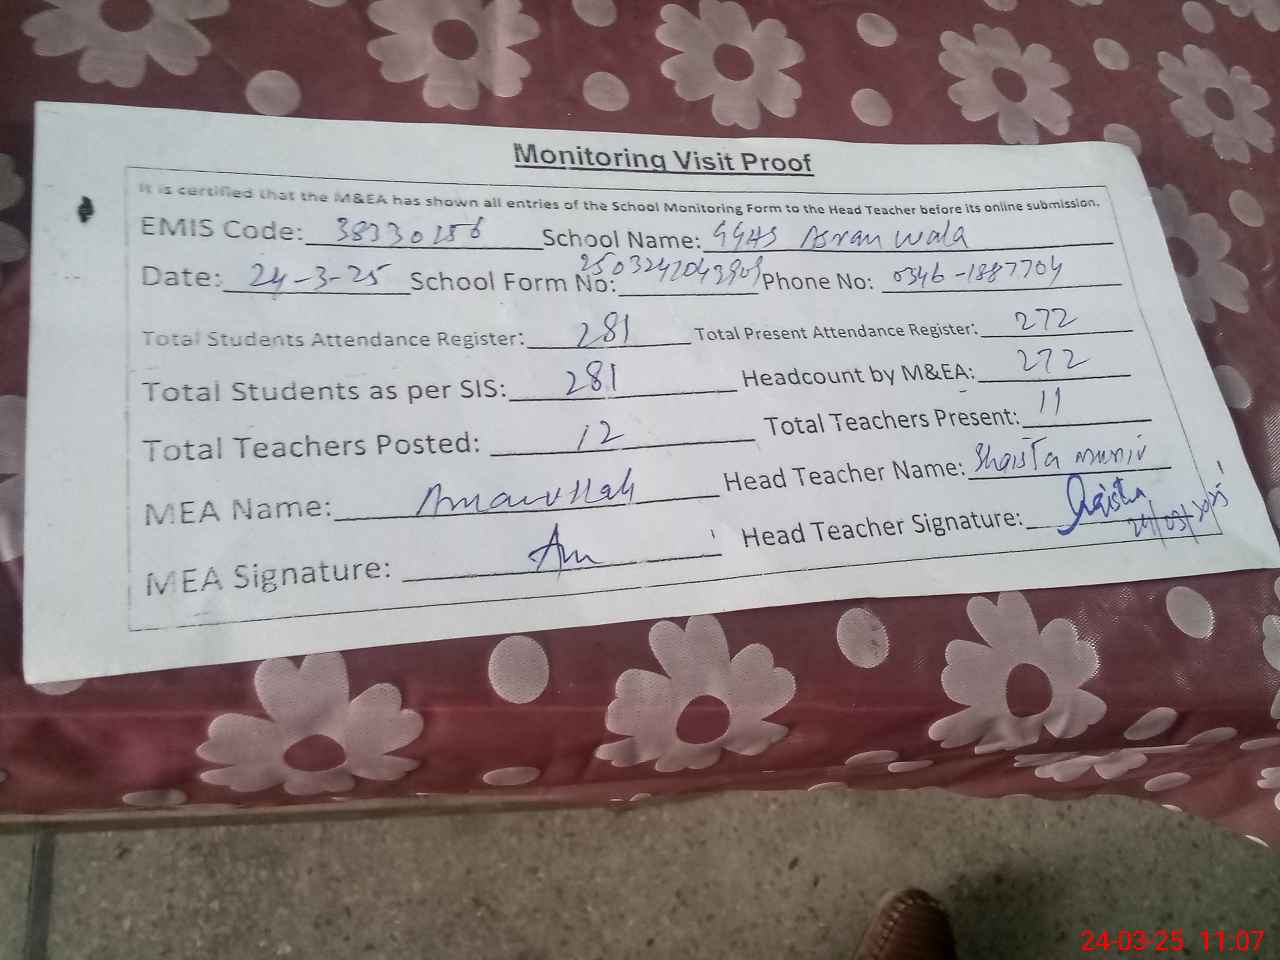 Monitoring Visit Proof
It is certified that the M&EA has shown all entries of the School Monitoring Form to the Head Teacher before its online submission.
EMIS Code: 38330256 School Name: GGHS Asran wala
Date: 24-3-25 School Form No: Phone No: 0346-1887704
Total Students Attendance Register: 281 Total Present Attendance Register: 272
Total Students as per SIS: 281 Headcount by M&EA: 272
Total Teachers Posted: 12 Total Teachers Present: 11
MEA Name: Amanullah Head Teacher Name: Shaista munir
MEA Signature: Am Head Teacher Signature: Shaista
24/03/2025
24-03-25 11:07